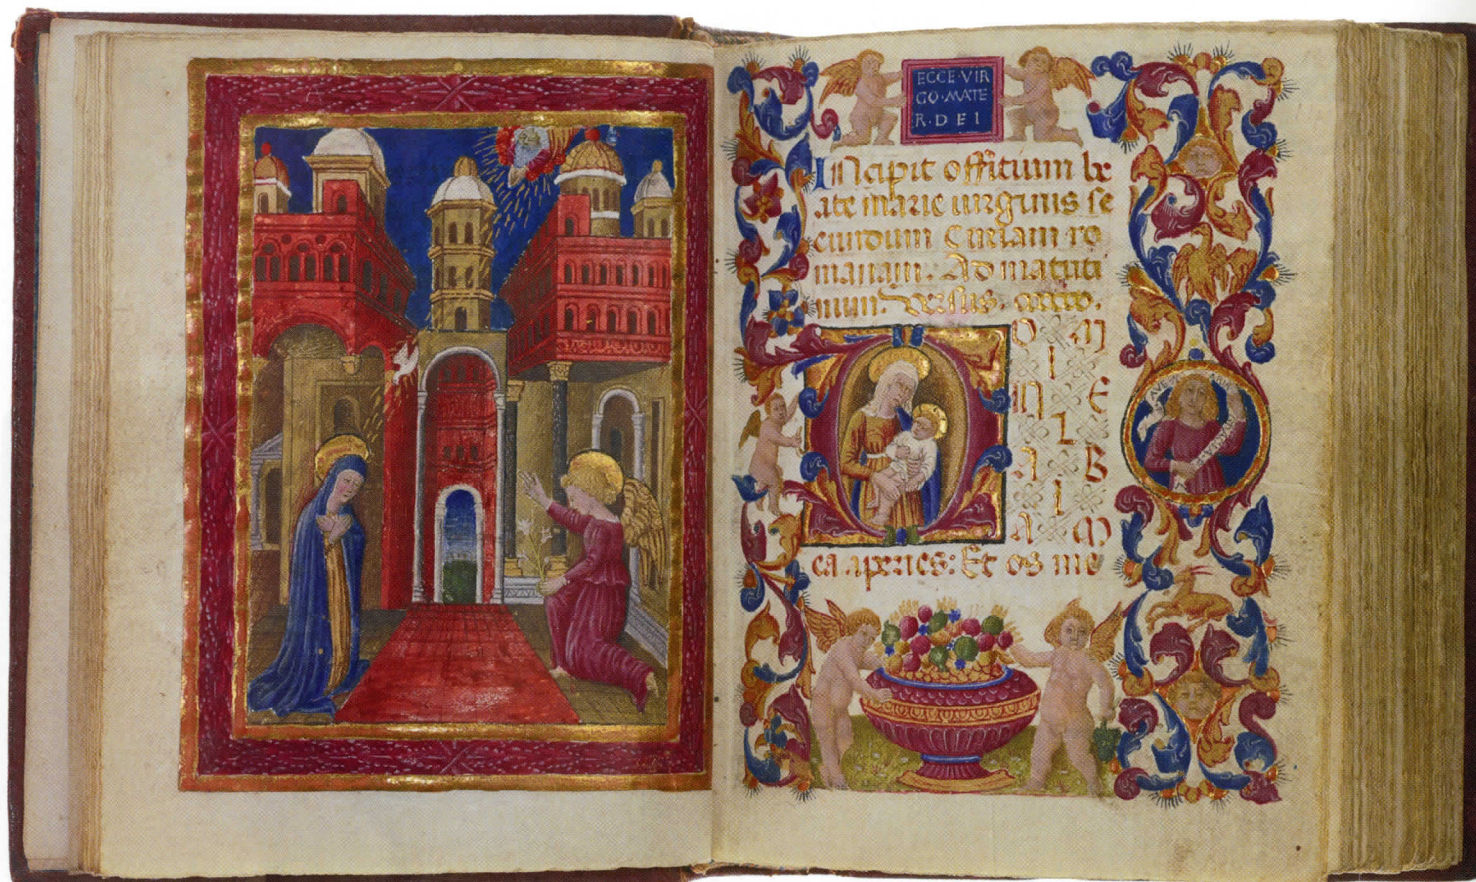 ECCE·VIR
GO·MATE
R·DEI
INcipit offitium be
ate marie uirginis se
cundum Curiam ro
manam. Ad matuti
num. Versus.
DOM
I
NE
L
AB
I
AM
ea aperies: Et os me